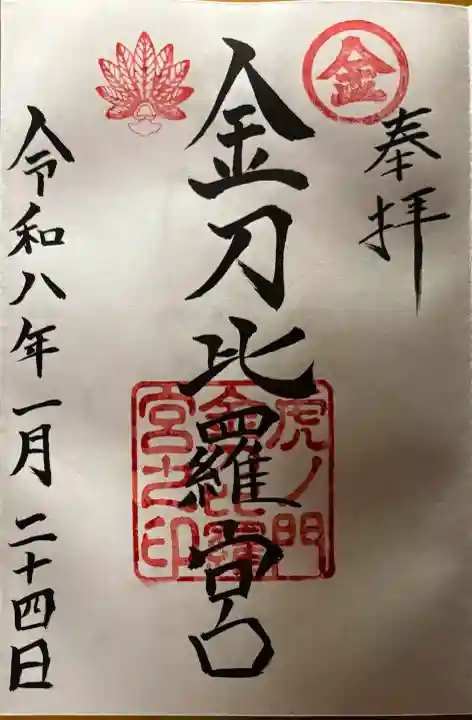 奉拝
金
金刀比羅宮
虎ノ門
金比羅
宮之印
令和八年一月二十四日